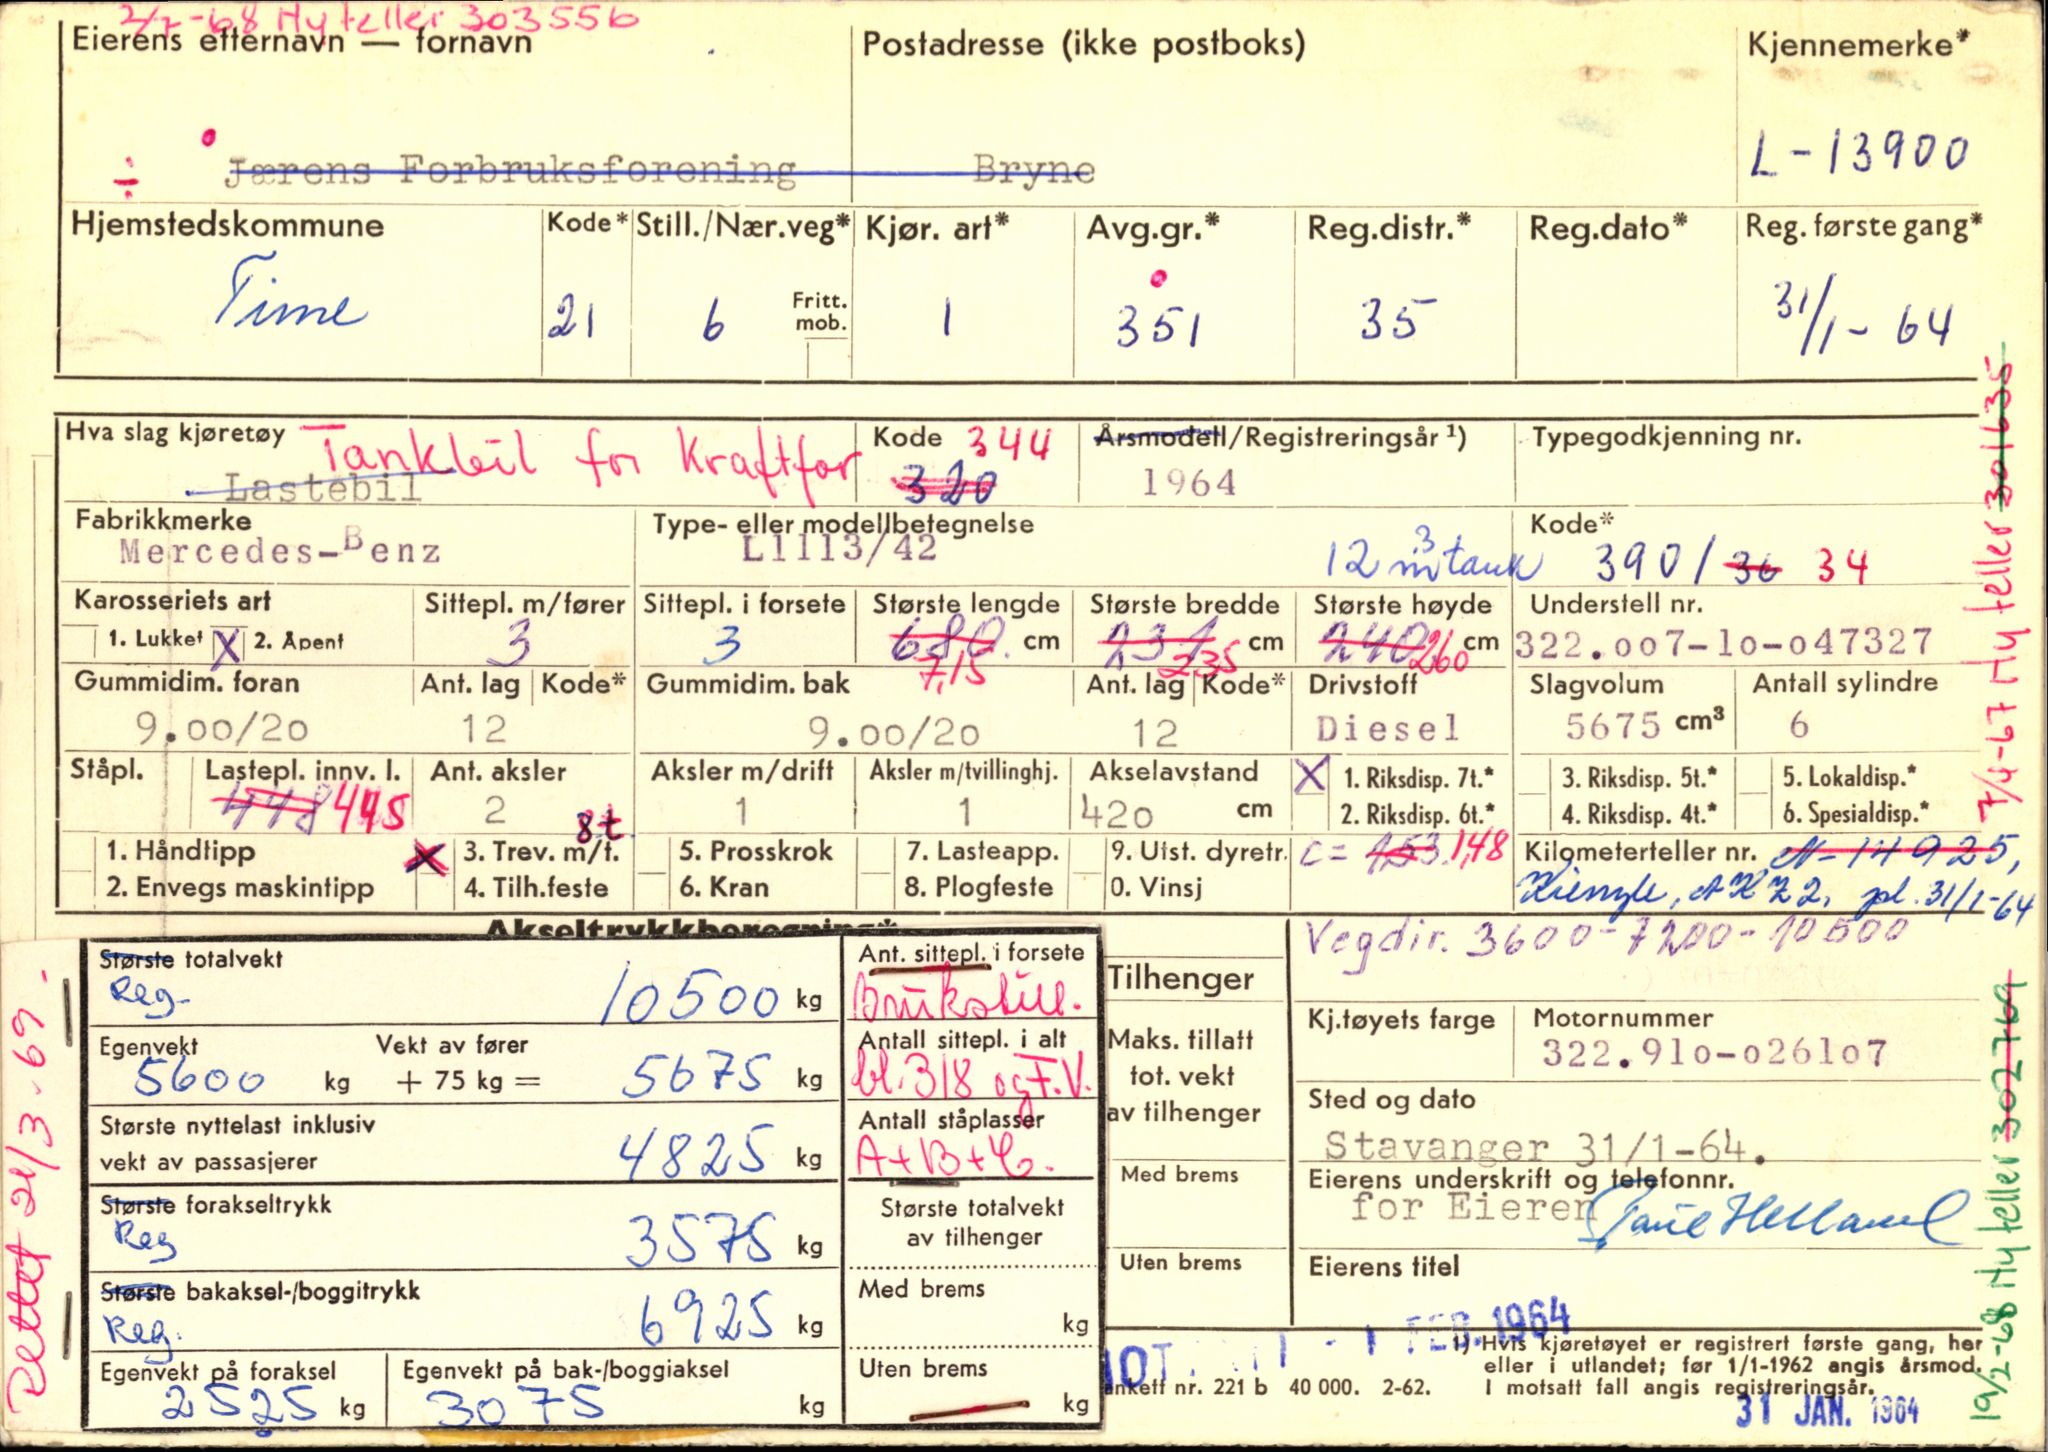 2/7-68 Ny teller 303556
Eierens efternavn — fornavn
Postadresse (ikke postboks)
Kjennemerke*
÷ Jærens Forbruksforening Bryne
L-13900
Hjemstedskommune Kode* Still./Nær.veg* Kjør. art* Avg.gr.* Reg.distr.* Reg.dato* Reg. første gang*
Time 21 6 Fritt. mob. 1 351 35 31/1-64
Hva slag kjøretøy Tankbil for Kraftfor Kode 344 Årsmodell/Registreringsår ¹) Typegodkjenning nr.
Lastebil 320 1964
Fabrikkmerke Type- eller modellbetegnelse Kode*
Mercedes-Benz L1113/42 12 m³ tank 390/36 34
Karosseriets art Sittepl. m/fører Sittepl. i forsete Største lengde Største bredde Største høyde Understell nr.
1. Lukket X 2. Åpent 3 3 680 cm 231 cm 240 260 cm 322.007-10-047327
7,15 235
Gummidim. foran Ant. lag Kode* Gummidim. bak Ant. lag Kode* Drivstoff Slagvolum Antall sylindre
9.00/20 12 9.00/20 12 Diesel 5675 cm³ 6
Ståpl. Lastepl. innv. l. Ant. aksler Aksler m/drift Aksler m/tvillinghj. Akselavstand X 1. Riksdisp. 7t.* 3. Riksdisp. 5t.* 5. Lokaldisp.*
448 445 2 1 1 420 cm 2. Riksdisp. 6t.* 4. Riksdisp. 4t.* 6. Spesialdisp.*
8t.
1. Håndtipp X 3. Trev. m/t. 5. Prosskrok 7. Lasteapp. 9. Utst. dyretr. C = 153 1,48 Kilometerteller nr. N-14925,
2. Envegs maskintipp 4. Tilh.feste 6. Kran 8. Plogfeste 0. Vinsj Kienzle, pl. 31/1-64
Akseltrykkberegning*
Vegdir. 3600-7200-10500
Største totalvekt
Reg. 10500 kg
Ant. sittepl. i forsete
Brukstill.
Egenvekt Vekt av fører
5600 kg + 75 kg = 5675 kg
Antall sittepl. i alt
bl. 318 og T.V.
Største nyttelast inklusiv
vekt av passasjerer 4825 kg
Antall ståplasser
A+B+C.
Største forakseltrykk
Reg 3575 kg
Største totalvekt
av tilhenger
Største bakaksel-/boggitrykk
Reg. 6925 kg
Med brems
kg
Egenvekt på foraksel Egenvekt på bak-/boggiaksel
2525 kg 3075 kg
Uten brems
kg
Tilhenger
Maks. tillatt
tot. vekt
av tilhenger
Med brems
Uten brems
Kj.tøyets farge Motornummer
322.910-026107
Sted og dato
Stavanger 31/1-64.
Eierens underskrift og telefonnr.
for Eieren Helland
Eierens titel
1 FEB. 1964
1) Hvis kjøretøyet er registrert første gang, her
eller i utlandet; før 1/1-1962 angis årsmod.
I motsatt fall angis registreringsår.
ankett nr. 221 b 40 000. 2-62.
31 JAN. 1964
Rettet 21/3-69.
7/4-67 Ny teller 301635
19/2-68 Ny teller 302769